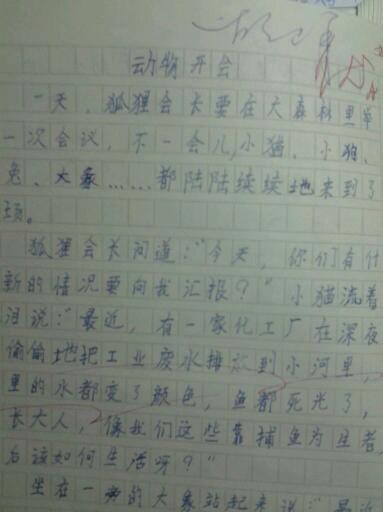 动物开会
一天，狐狸会长要在大森林里举
一次会议，不一会儿，小猫、小狗、
兔、大象……都陆陆续续地来到了
场。
狐狸会长问道：“今天，你们有什
新的情况要向我汇报？”小猫流着
泪说：“最近，有一家化工厂在深夜
偷偷地把工业废水排放到小河里，
里的水都变了颜色，鱼都死光了，
长大人，像我们这些靠捕鱼为生者，
后该如何生活呀？”
坐在一旁的大象站起来说：“最近